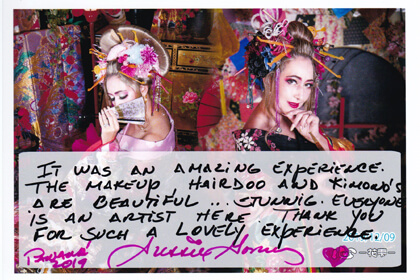 IT WAS AN AMAZING EXPERIENCE.
THE MAKEUP, HAIRDOO AND KIMONO'S
ARE BEAUTIFUL ... STUNNIG. EVERYONE
IS AN ARTIST HERE THANK YOU
FOR SUCH A LOVELY EXPERIENCE.
2019